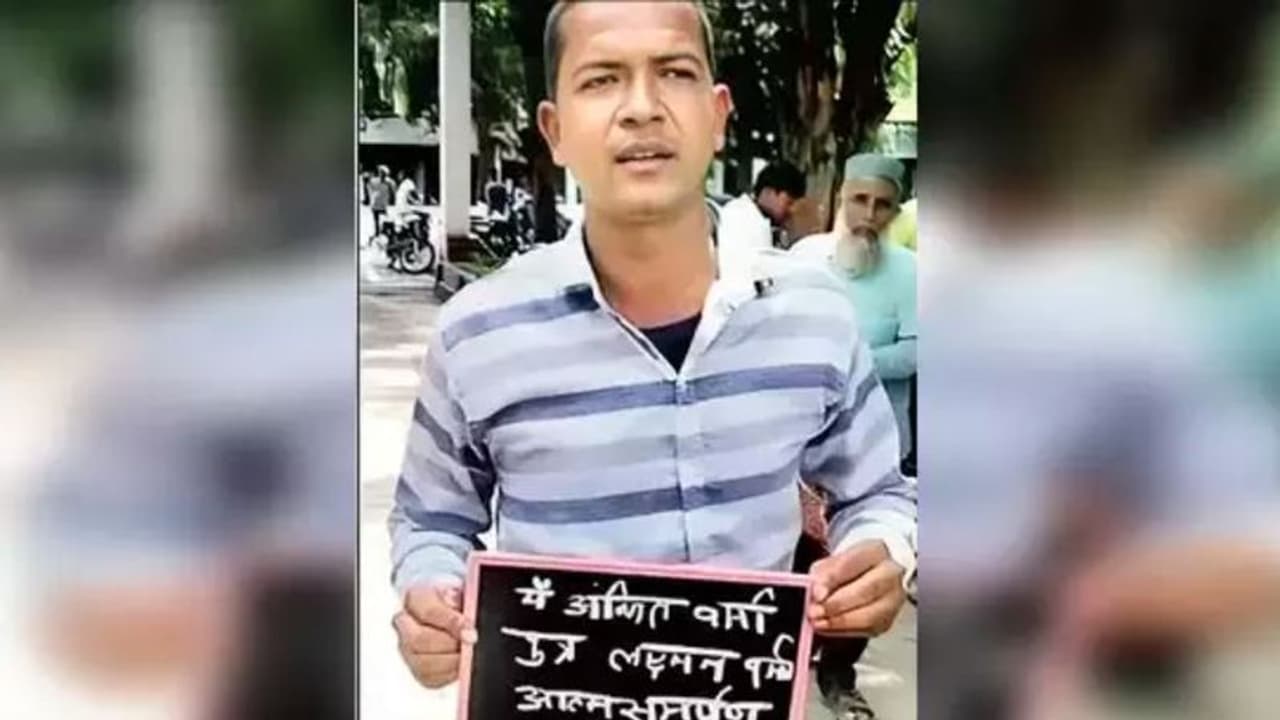 मैं वर्मा
पुत्र लछमन वर्मा
आत्मसमर्पण